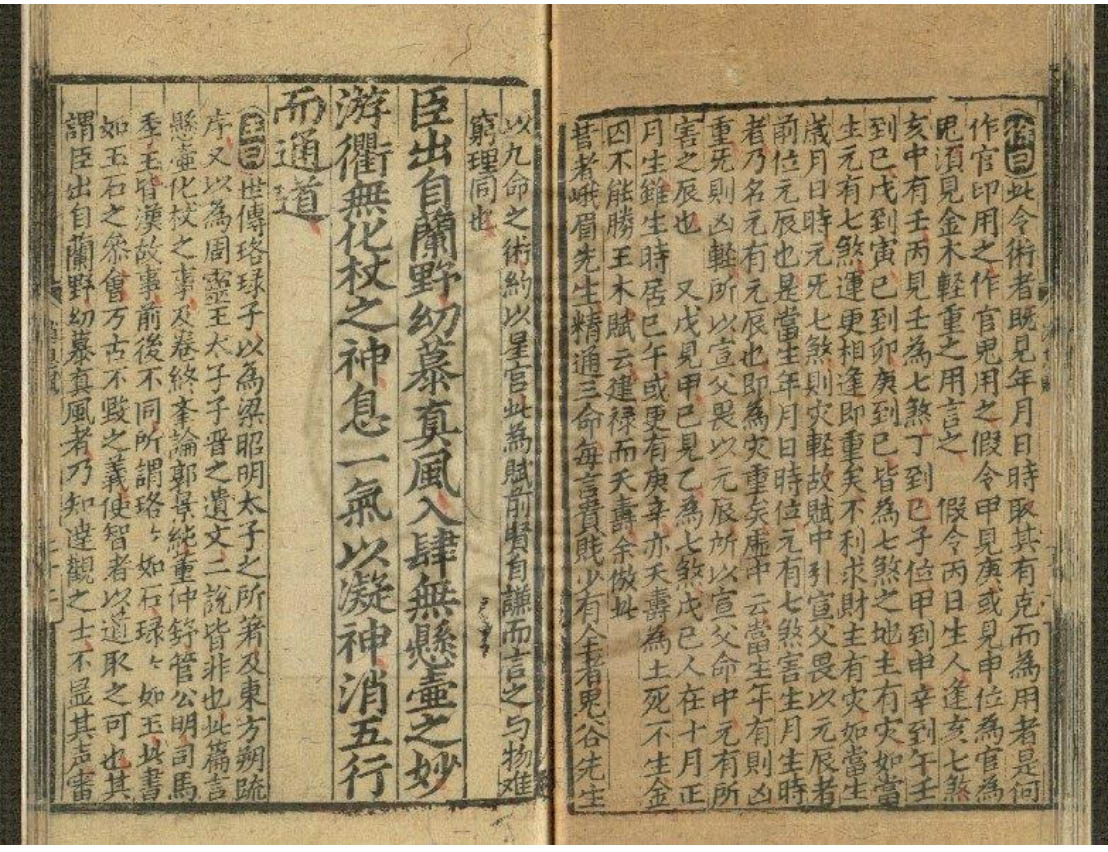 徐曰此令術者既見年月日時取其有克而為用者是何
作官印用之作官鬼用之假令甲見庚或見申位為官為
鬼須見金木輕重之用言之　假令丙日生人逢亥七煞
亥中有壬丙見壬為七煞丁到巳子位甲到申辛到午壬
到巳戊到寅己到卯庚到巳皆為七煞之地主有灾如當
生元有七煞運更相逢即重矣不利求財主有灾如當生
歳月日時元死七煞則灾軽故賦中引宣父畏以元辰者
前位元辰也是當生年月日時位元有七煞害生月生時
者乃名元有元辰也即為灾重矣虗中云當生年有則凶
重死則凶軽所以宣父畏以元辰所以宣父命中元有所
害之辰也　又戊見甲己見乙為七煞戊己人在十月正
月生雖生時居巳午或更有庚辛亦夭壽為土死不生金
囚不能勝王木賦云建禄而夭壽余倣此
昔者峨眉先生精通三命每言貴賤少有全者鬼谷先生
以九命之術約以星官此為賦前賢自謙而言之与物難
窮理同也
臣出自蘭野幼慕真風入肆無懸壷之妙
游衢無化杖之神息一氣以凝神消五行
而通道
王曰世傳珞琭子以為梁昭明太子之所著及東方朔䟽
序又以為周霊王太子子晋之遺文二說皆非也此篇言
懸壷化杖之事及卷終峯論郭景純董仲舒管公明司馬
季主皆漢故事前後不同所謂珞〻如石琭〻如玉此書
如玉石之叅會万古不毁之義使智者以道取之可也其
謂臣出自蘭野幼慕真風者乃知逹觀之士不显其声雷